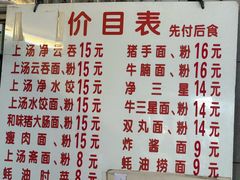 价目表 先付后食
上汤净云吞15元
上汤云吞面、粉15元
上汤净水饺15元
上汤水饺面、粉15元
和味猪大肠面、粉15元
瘦肉面、粉15元
上汤斋面、粉8元
蚝油时菜8元
猪手面、粉16元
牛腩面、粉16元
净三星14元
牛三星面、粉14元
双丸面、粉14元
炸酱面9元
蚝油捞面9元